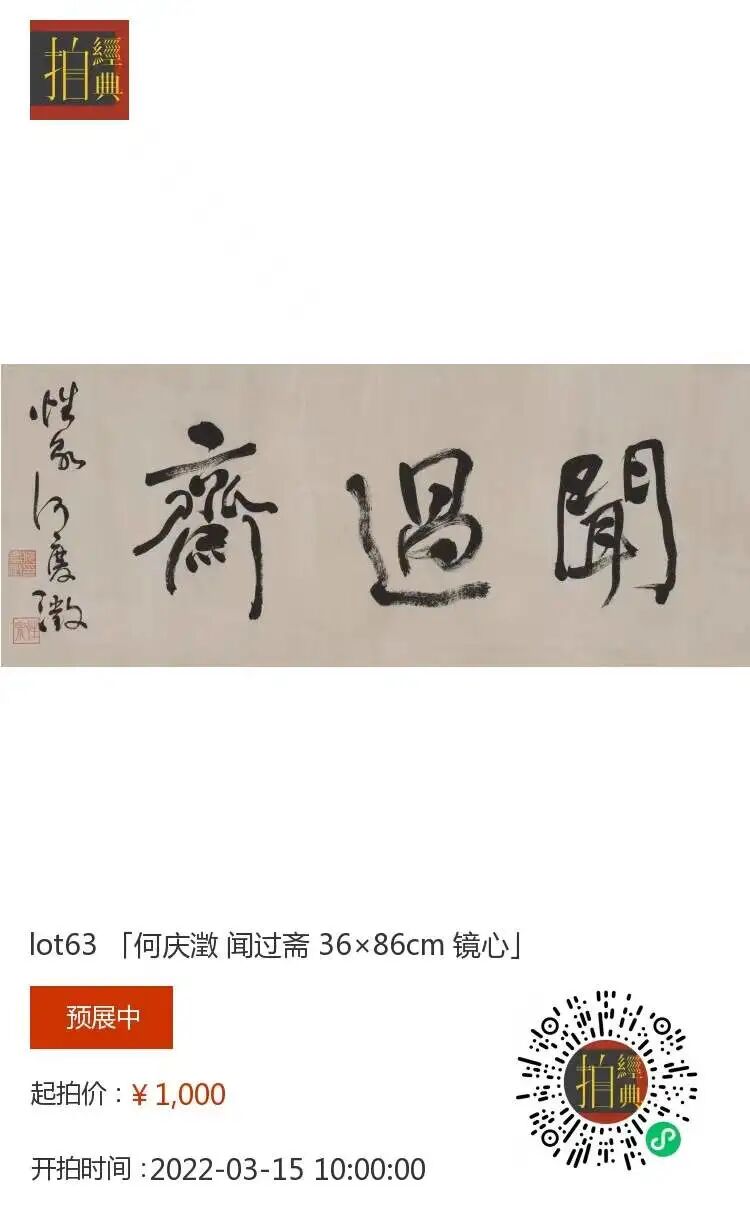 拍經典
聞過齋
性泉何慶澂
lot63 「何庆澂 闻过斋 36×86cm 镜心」
预展中
起拍价：¥ 1,000
开拍时间：2022-03-15 10:00:00
拍經典